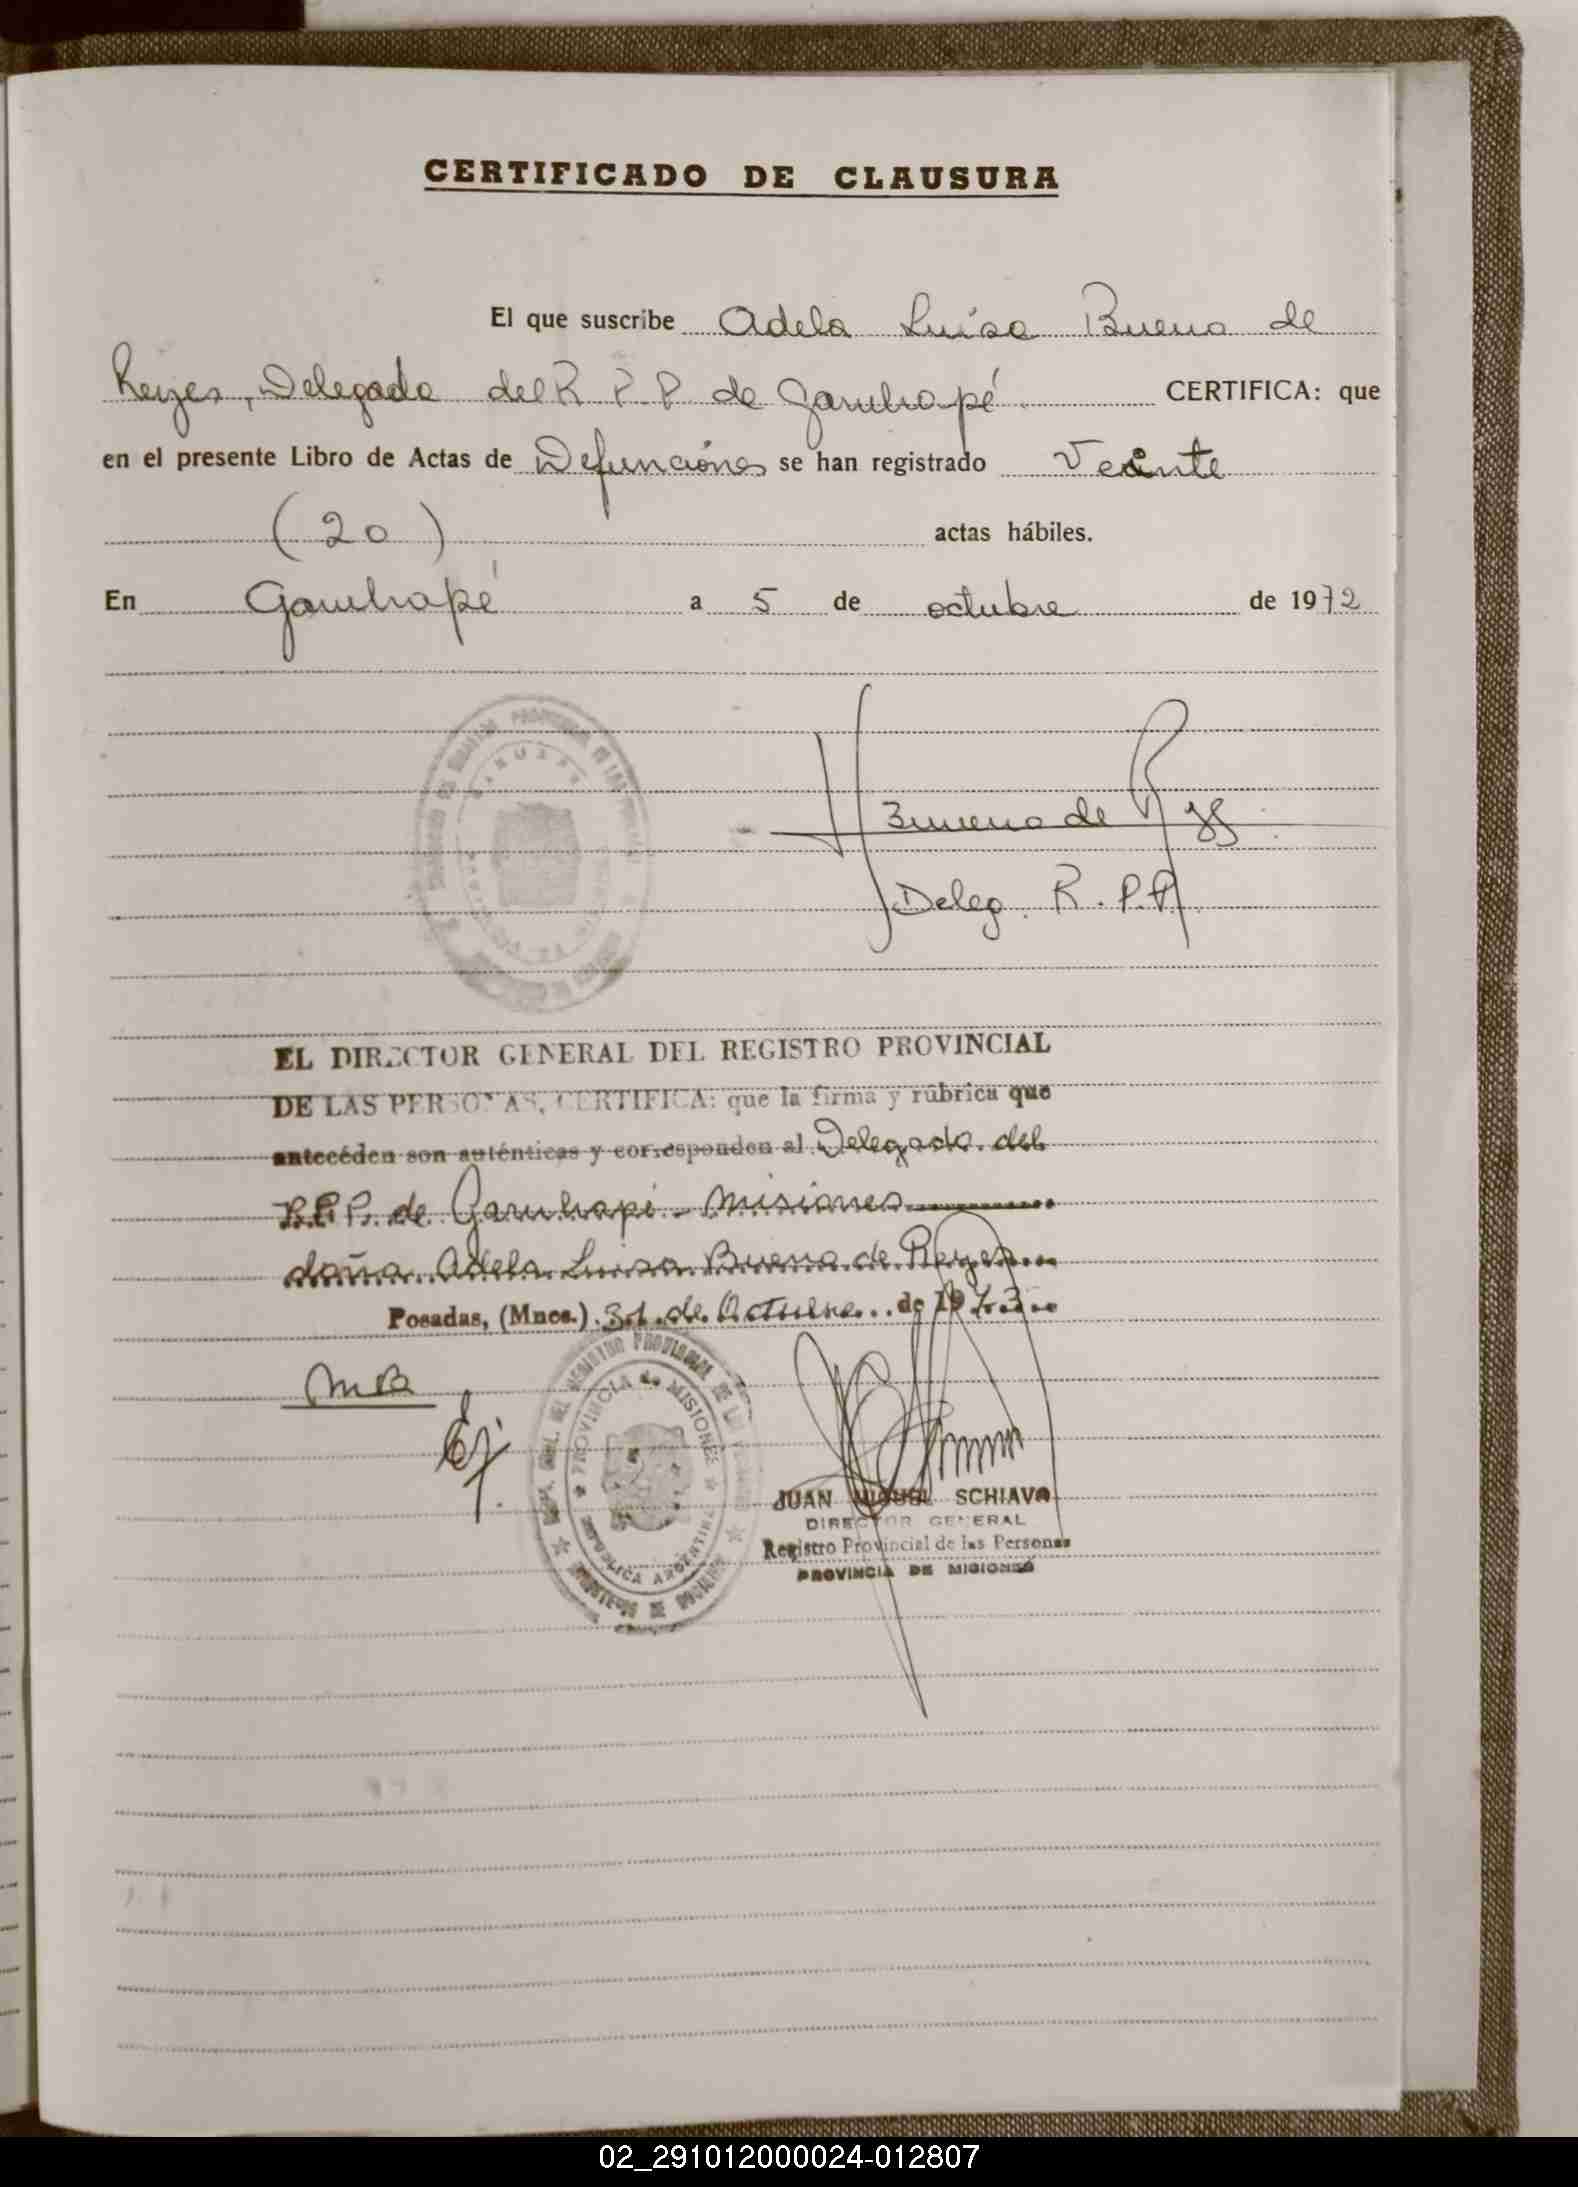 CERTIFICADO DE CLAUSURA
El que suscribe Adela Luisa Bueno de
Reyes, Delegada del R.P.P de Garuhapé. CERTIFICA: que
en el presente Libro de Actas de Defunciónes se han registrado Veinte
(20) actas hábiles.
En Garuhapé a 5 de octubre de 1972
Bueno de Reyes
Deleg. R.P.P.
EL DIRECTOR GENERAL DEL REGISTRO PROVINCIAL
DE LAS PERSONAS, CERTIFICA: que la firma y rúbrica que
anteceden son auténticas y corresponden al Delegado del
R.P.P. de Garuhapé - Misiones
doña Adela Luisa Bueno de Reyes
Posadas, (Mnes.) 31 de Octubre de 1973
PROVINCIA DE MISIONES
REPUBLICA ARGENTINA
JUAN MIGUEL SCHIAVO
DIRECTOR GENERAL
Registro Provincial de las Personas
PROVINCIA DE MISIONES
02_291012000024-012807